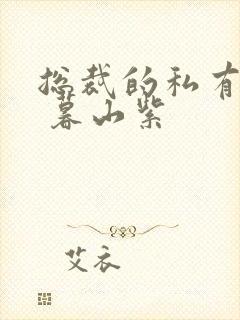 总裁的私有
暮山紫
艾衣